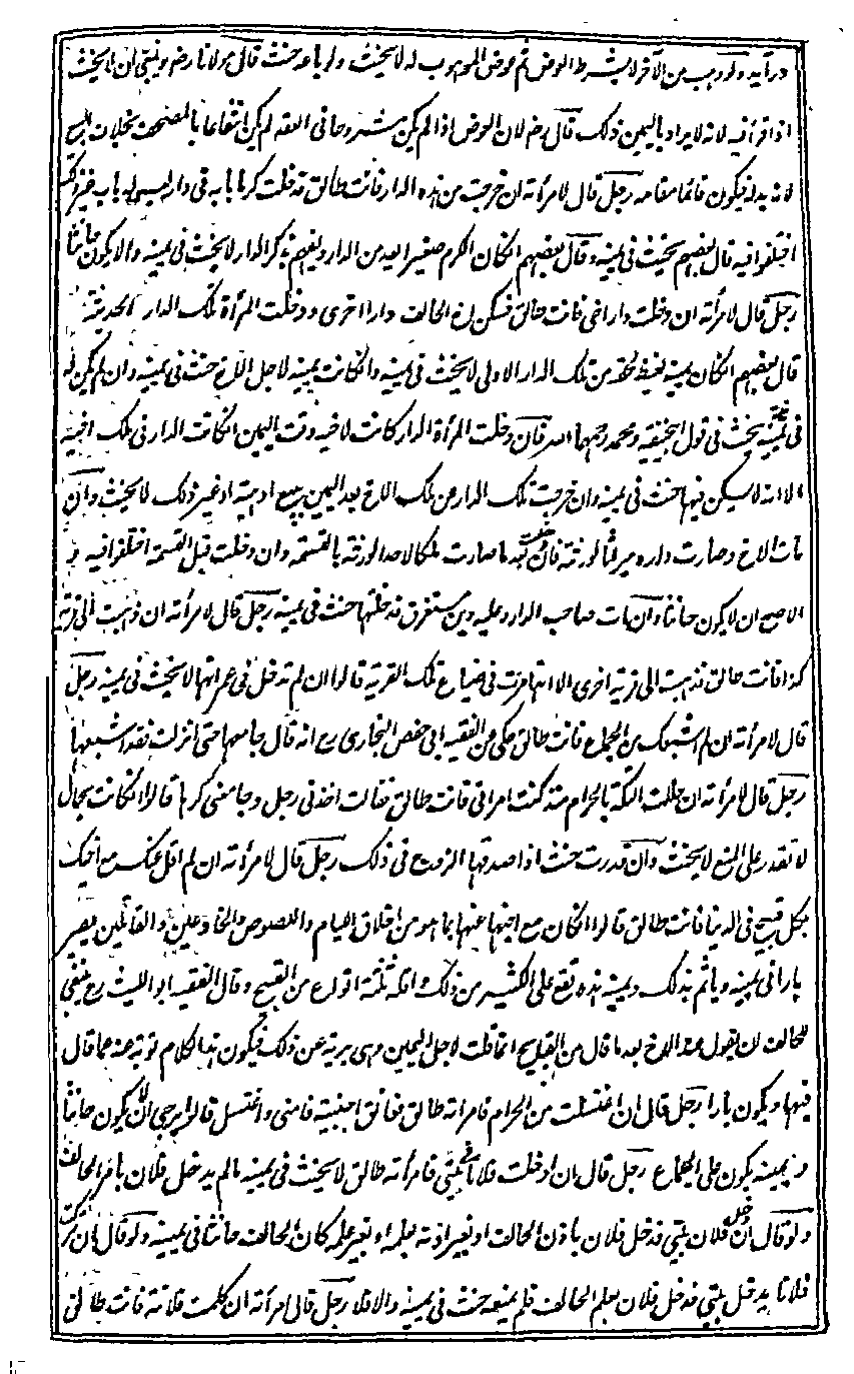 در آيد ولو وهب من الآخر لا بشرط العوض ثم عوض الموهوب له لا يحنث ولو باعه حنث قال مولانا رضـ وينبغي ان لا يحنث
اذا قرأ فيه لانه لا يراد باليمين ذلك قال رضـ لان العوض اذا لم يكن مشروطا في العقد لم يكن انتفاعا بالمصحف بخلاف البيع
لانه بدله فيكون قائما مقامه رجل قال لامرأته ان خرجت من هذه الدار فانت طالق فدخلت كرما بابه في دار ليس له باب غيره
اختلفوا فيه قال بعضهم يحنث في يمينه وقال بعضهم انكان الكرم صغيرا يعد من الدار ويفهم بذكر الدار لا يحنث في يمينه والا يكون حانثا
رجل قال لامرأته ان دخلت دار اخي فانت طالق فسكن اخ الحالف دارا اخرى ودخلت المرأة تلك الدار الحديثة
قال بعضهم انكان يمينه لغيظ لحقه من تلك الدار الاولى لا يحنث في يمينه وانكانت يمينه لاجل الاخ حنث في يمينه وان لم يكن له
في يمينه نية يحنث في قول ابي حنيفة ومحمد رحمهما الله فان دخلت المرأة الدار كانت لاخيه وقت اليمين انكانت الدار في ملك اخيه
الا انه لا يسكن فيها حنث في يمينه وان خرجت تلك الدار من ملك الاخ بعد اليمين ببيع او هبة او غير ذلك لا يحنث وان
مات الاخ وصارت داره ميراثا لورثته فان دخلت بعد ما صارت ملكا لاحد الورثة بالقسمة وان دخلت قبل القسمة اختلفوا فيه و
الاصح ان لا يكون حانثا وان مات صاحب الدار وعليه دين مستغرق فدخلتها حنث في يمينه رجل قال لامرأته ان ذهبت الى قرية
كذا فانت طالق فذهبت الى قرية اخرى الا انها مرت في ضياع تلك القرية قالوا ان لم تدخل في عمرانها لا يحنث في يمينه رجل
قال لامرأته ان لم اشبعك من الجماع فانت طالق حكي عن الفقيه ابي حفص البخاري رح انه قال جامعها حتى انزلت فقد اشبعها
رجل قال لامرأته ان حللت التكة بالحرام منذ كنت امراتي فانت طالق فقالت اخذني رجل وجامعني كرها قالوا انكانت بحال
لا تقدر على المنع لا يحنث وان قدرت حنث اذا صدقها الزوج في ذلك رجل قال لامرأته ان لم اقل عنك مع اخيك
بكل قبيح في الدنيا فانت طالق قالوا انكان مع اخيها عنها بما هو من اخلاق اللئام واللصوص والخادعين والقاتلين يصير
بارا في يمينه وياثم بذلك ويمينه هذه تقع على الكثير من ذلك واقله ثلثة انواع من القبيح وقال الفقيه ابو الليث رح ينبغي
للحالف ان يقول عند الاخ بعد ما قال من القبايح انما قلت لاجل اليمين وهي برية عن ذلك فيكون هذا الكلام توبة عنه عما قال
فيها ويكون بارا رجل قال ان اغتسلت من الحرام فامرأته طالق فعانق اجنبية فامنى واغتسل قالوا يرجى ان لا يكون حانثا
ويمينه يكون على الجماع رجل قال ان ادخلت فلانا في بيتي فامرأته طالق لا يحنث في يمينه مالم يدخل فلان بامر الحالف
ولو قال ان دخل فلان بيتي فدخل فلان باذن الحالف او بغير اذنه بعلمه او بغير علمه كان الحالف حانثا في يمينه ولو قال ان تركت
فلانا يدخل بيتي فدخل فلان بعلم الحالف فلم يمنعه حنث في يمينه والا فلا رجل قال لامرأته ان كلمت فلانة فانت طالق